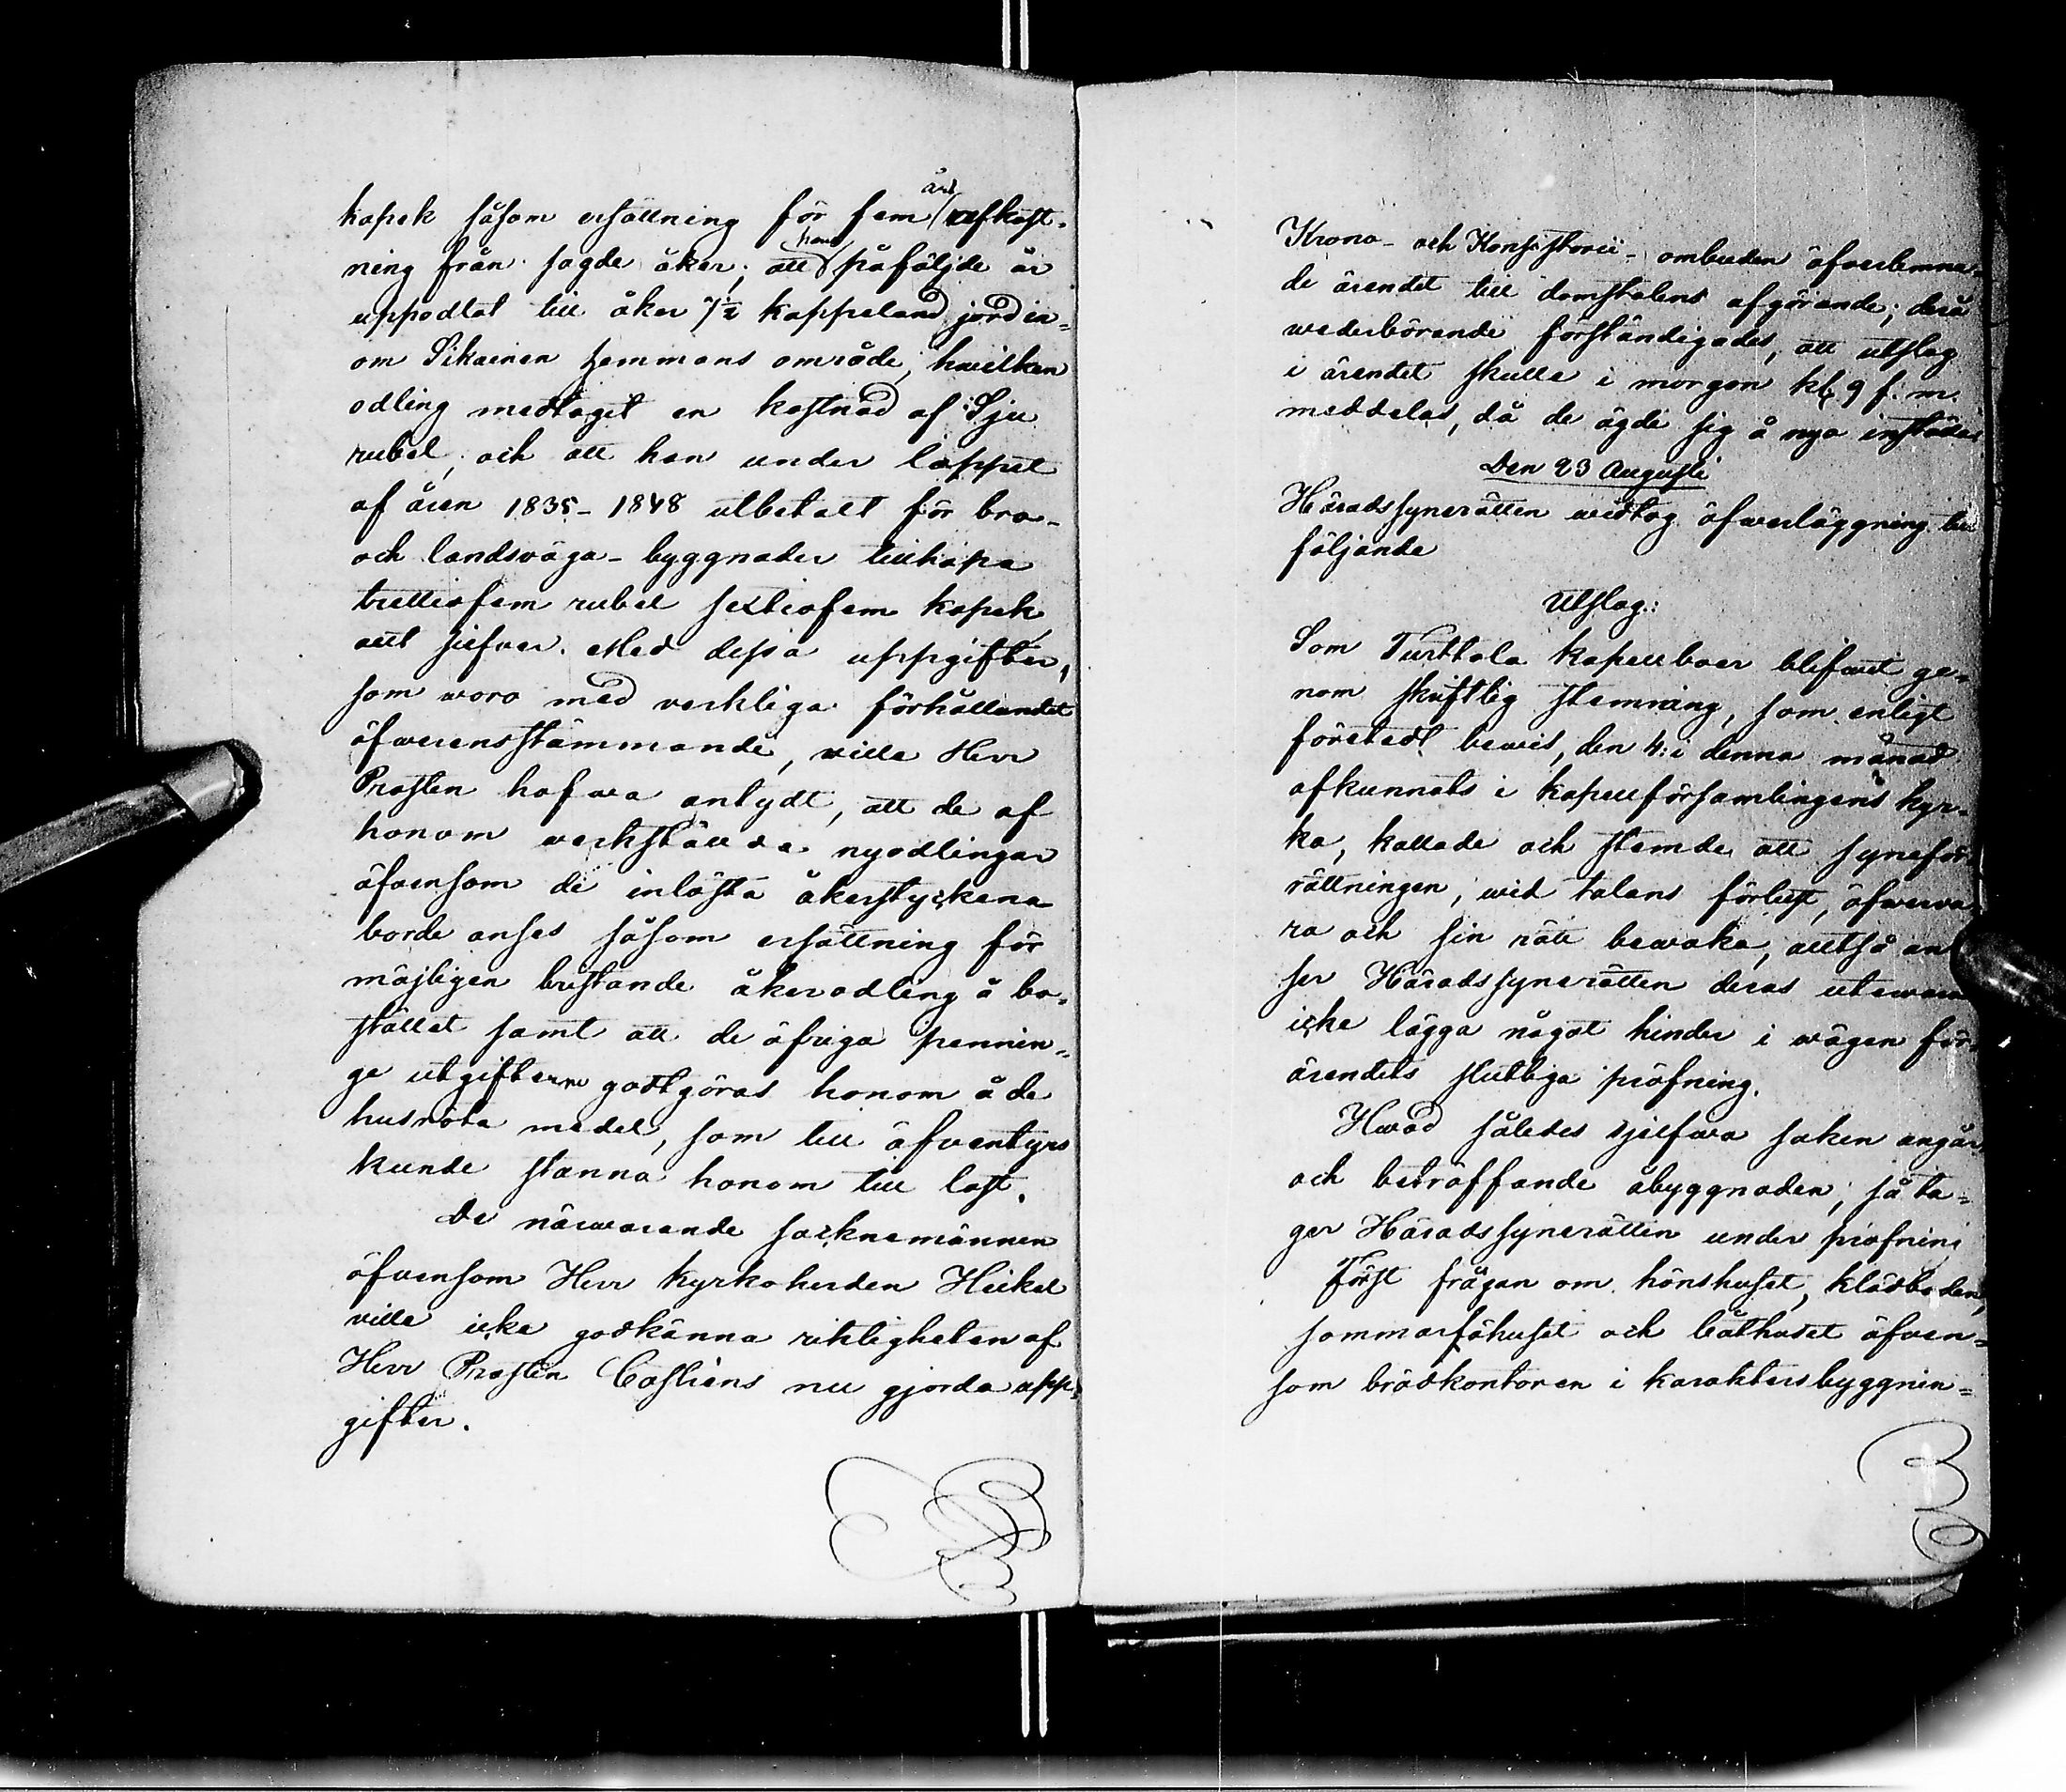 kopek såsom ersättning för fem års afkast-
ning från sagde åker; att han påföljde år
uppodlat till åker 7½ kappeland jord in-
om Sikainen hemmans område, hvilken
odling medtaget en kostnad af Sju
rubel, och att han under loppet
af åren 1835-1848 utbetalt för bro-
och landsväga-byggnader tillhopa
trettiofem rubel sextiofem kopek
allt silfver. Med dessa uppgifter,
som woro med verkliga förhållandet
öfwerensstämmande, ville Herr
Prosten hafwa antydt, att de af
honom verkställda nyodlingar
äfvensom de inlösta åkerstyckena
borde anses såsom ersättning för
möjligen bristande åkerodling å bo-
stället samt att de öfriga pennin-
ge utgifterna godtgöras honom å de
husröte medel, som till äfventyrs
kunde stanna honom till last.
De närwarande socknemännen
äfvensom Herr Kyrkoherden Heikel
ville icke godkänna riktigheten af
Herr Prosten Castréns nu gjorda upp-
gifter.
Krono- och Konsistorii-ombuden öfwerlemna-
de ärendet till domstolens afgörande; derå
wederbörande förständigades, att utslag
i ärendet skulle i morgon kl 9 f. m.
meddelas, då de ägde sig å nyo inställa.
Den 23 Augusti
Häradssynerätten widtog öfwerläggning till
följande
Utslag:
Som Turttola kapellboer blifwit ge-
nom skriftlig stemning, som enligt
företedt bewis, den 4:i denna månad
afkunnats i kapellförsamlingens kyr-
ka, kallade och stemde att syneför-
rättningen, wid talans förlust, öfwerva-
ra och sin rätt bewaka, alltså an-
ser Häradssynerätten deras utewaro
icke lägga något hinder i wägen för
ärendets slutliga pröfning.
Hwad således sjelfwa saken angår
och beträffande åbyggnaden, så ta-
ger Häradssynerätten under pröfning
Först frågan om hönshuset, klädboden,
sommarfähuset och båthuset äfven-
som brödkontoren i karaktersbyggnin-